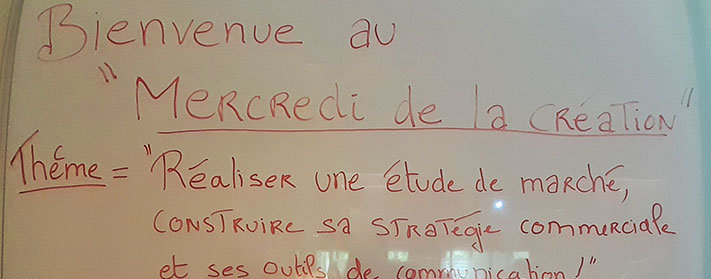 Bienvenue au
"Mercredi de la Création"
Thème = "Réaliser une étude de marché,
construire sa stratégie commerciale
et ses outils de communication!"